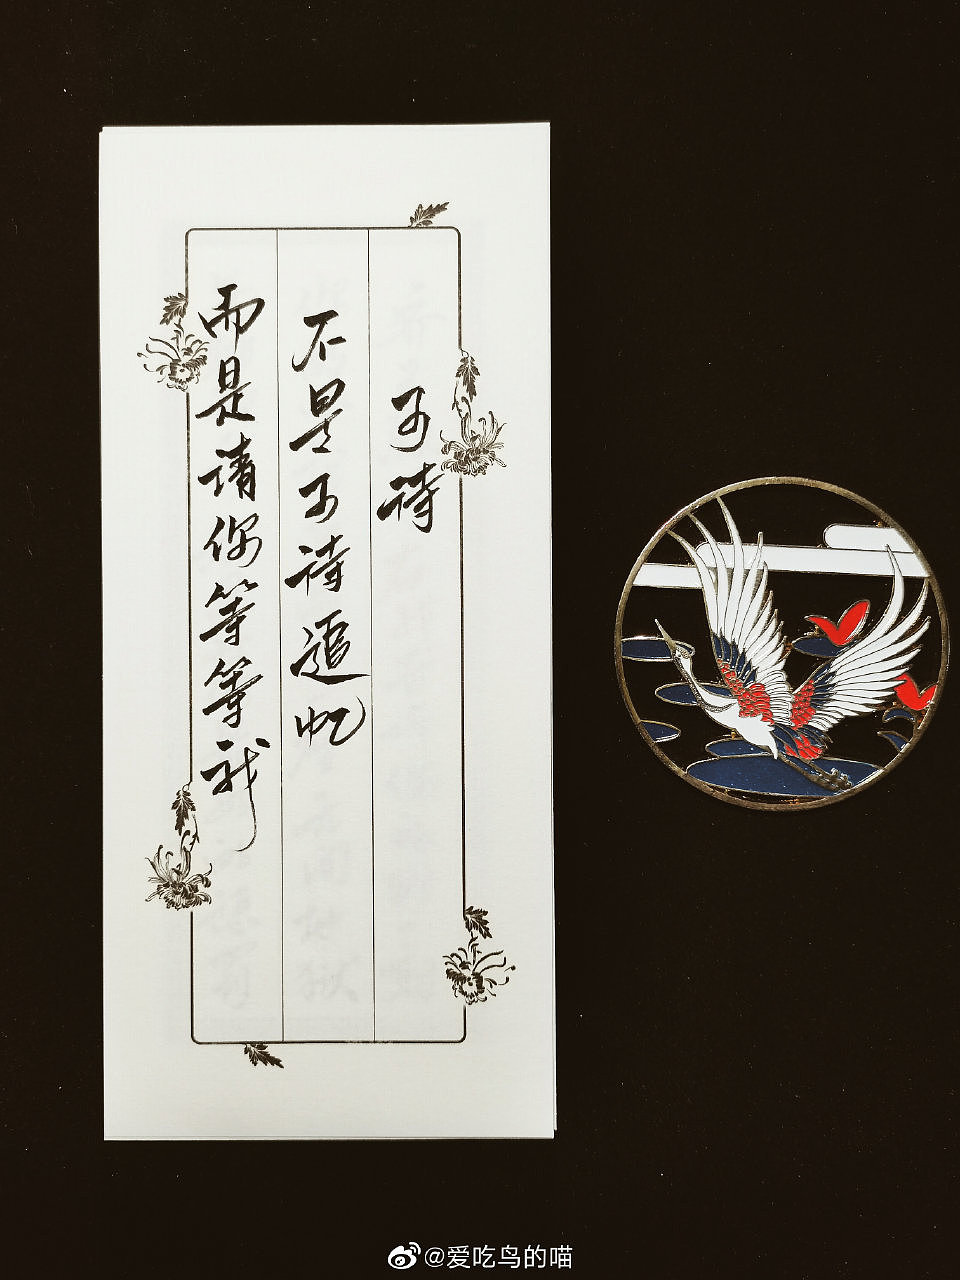 可待
不是可待追忆
而是请你等等我
@爱吃鸟的喵